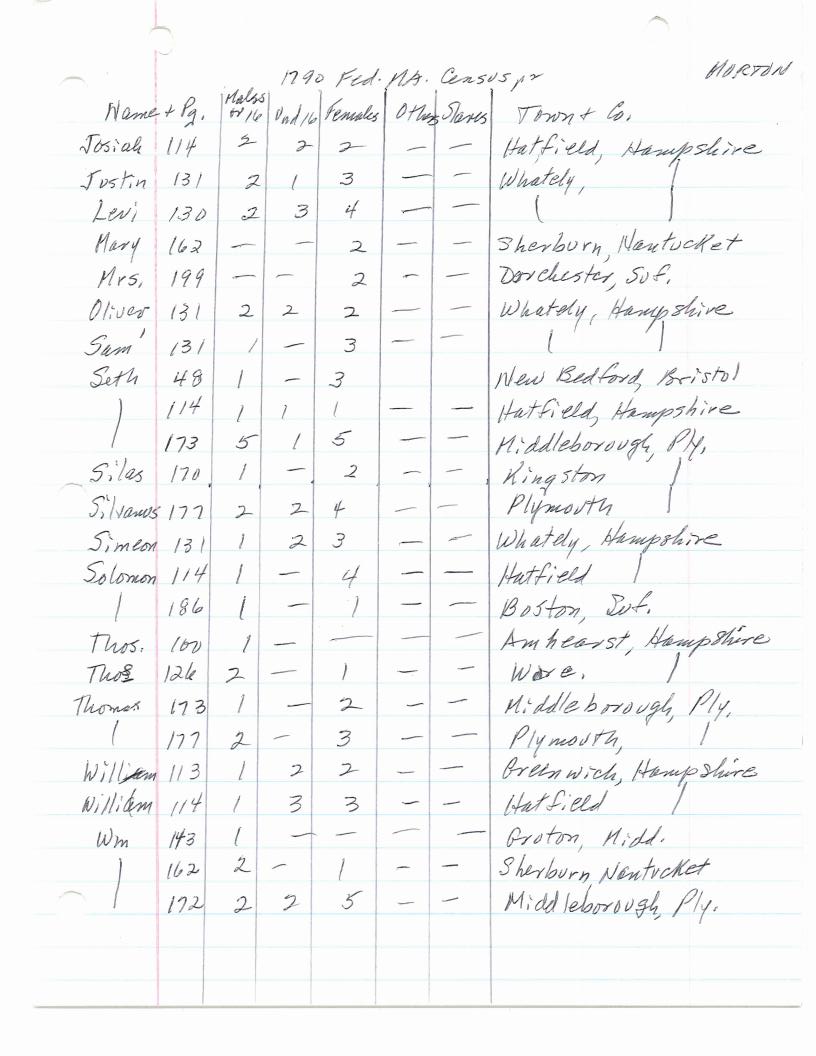 1790 Fed. MA. Census, p2 MORTON
Name + Pg. Males ov 16 Und 16 Females Others Slaves Town + Co.
Josiah 114 2 2 2 — — Hatfield, Hampshire
Justin 131 2 1 3 — — Whately,
Levi 130 2 3 4 — —
Mary 162 — — 2 — — Sherburn, Nantucket
Mrs. 199 — — 2 — — Dorchester, Suf.
Oliver 131 2 2 2 — — Whately, Hampshire
Sam' 131 1 — 3 — —
Seth 48 1 — 3 New Bedford, Bristol
114 1 1 1 — — Hatfield, Hampshire
173 5 1 5 — — Middleborough, Ply.
Silas 170 1 — 2 — — Kingston
Silvanus 177 2 2 4 — — Plymouth
Simeon 131 1 2 3 — — Whately, Hampshire
Solomon 114 1 — 4 — — Hatfield
186 1 — 1 — — Boston, Suf.
Thos. 100 1 — — — — Amhearst, Hampshire
Thos 126 2 — 1 — — Ware.
Thomas 173 1 — 2 — — Middleborough, Ply.
177 2 — 3 — — Plymouth,
William 113 1 2 2 — — Greenwich, Hampshire
William 114 1 3 3 — — Hatfield
Wm 143 1 — — — — Groton, Midd.
162 2 — 1 — — Sherburn, Nantucket
172 2 2 5 — — Middleborough, Ply.